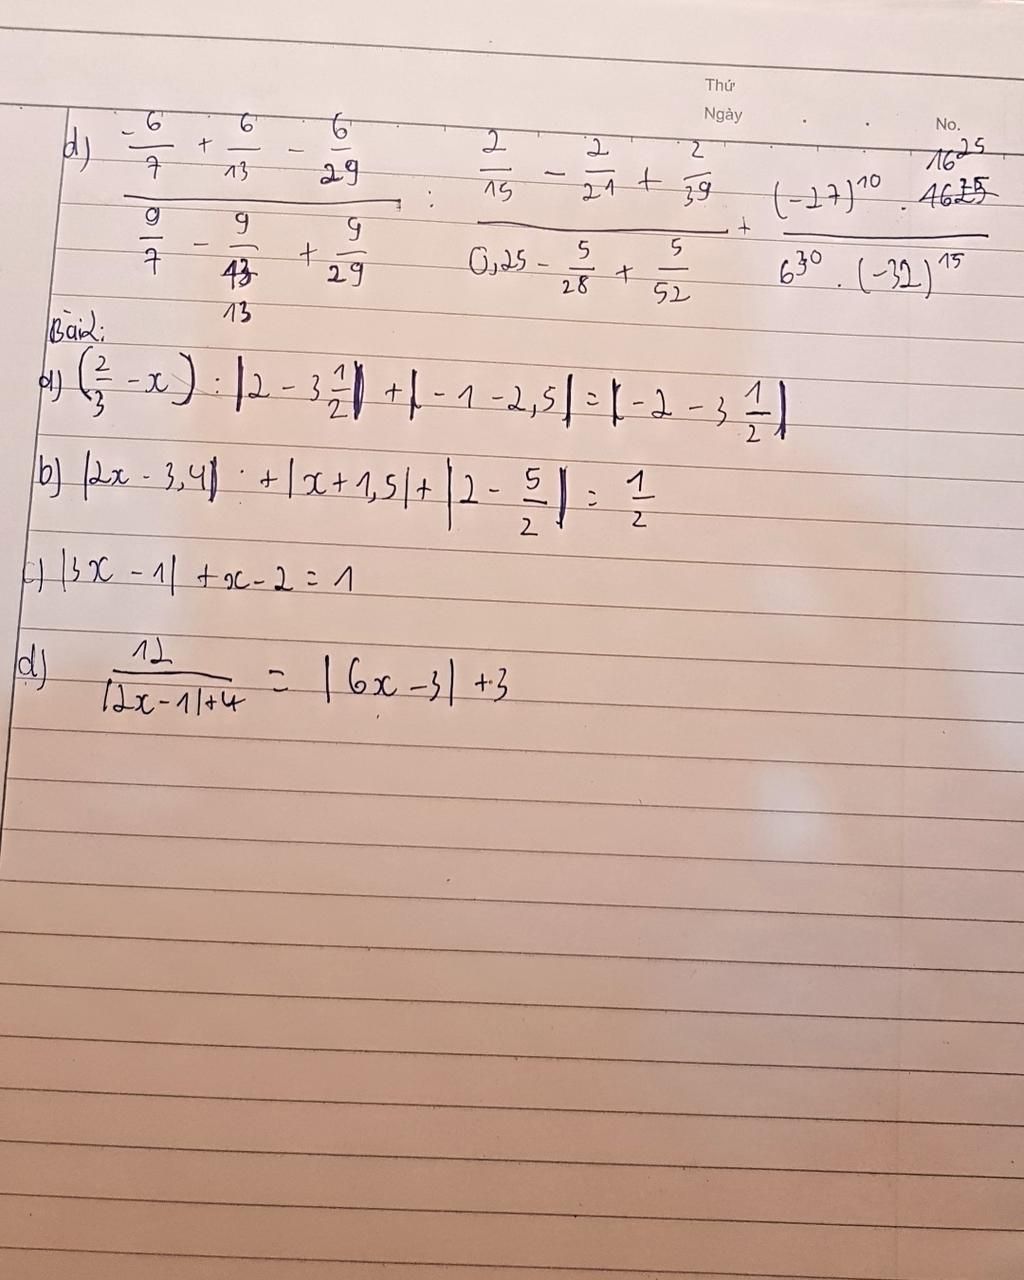 Thứ
Ngày
No.
d) (-6/7 + 6/13 - 6/29)/(9/7 - 9/13 + 9/29) : (2/15 - 2/21 + 2/39)/(0,25 - 5/28 + 5/52) + ((-27)^10 . 16^25)/(6^30 . (-32)^15)
Bài2:
a) (2/3 - x) : |2 - 3 1/2| + |-1 - 2,5| = |-2 - 3 1/2|
b) |2x - 3,4| + |x + 1,5| + |2 - 5/2| = 1/2
c) |3x - 1| + x - 2 = 1
d) 12/(|2x - 1| + 4) = |6x - 3| + 3